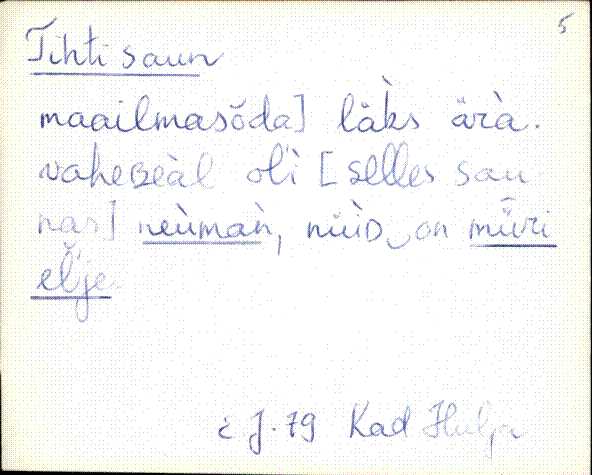 5
Tihti saun
maailmasõda] läks ärà.
vaheʙèàl ol̀i [selles sau
nas] neùmaǹ, nüìᴅ‿on mǖri
elje.
č J. 79 Kad Hulja